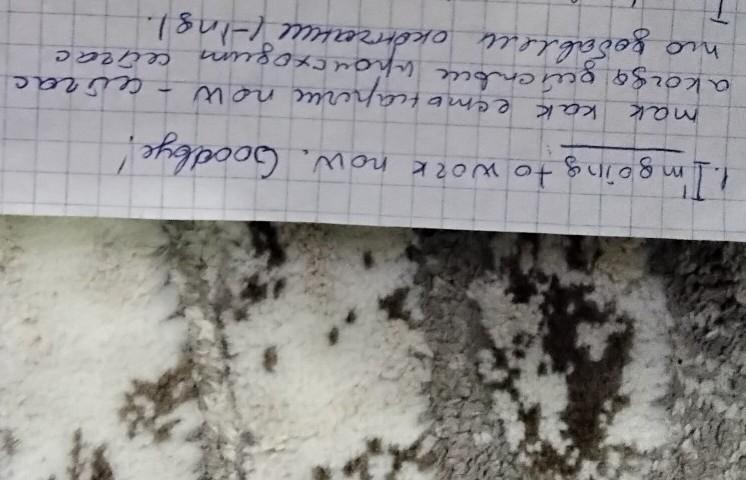 1. I'm going to work now. Goodbye!
так как есть наречие now - сейчас
а когда действие происходит сейчас
то добавляем окончание (-ing).